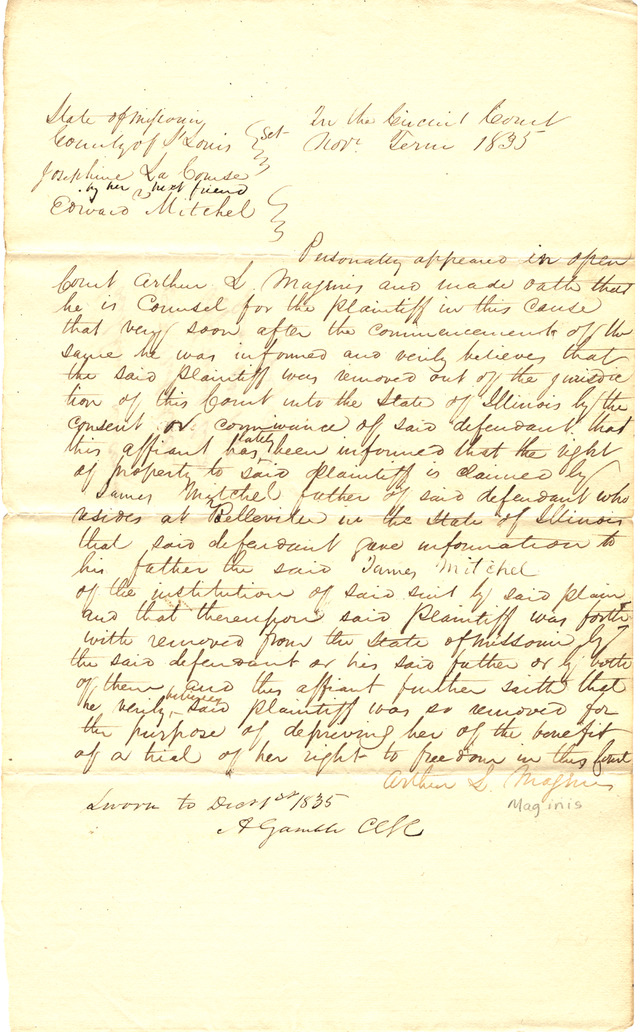 State of Missouri
County of St Louis } Sct
In the Circuit Court
Nov. Term 1835
Josephine La Course
by her next friend
Edward Mitchel
Personally appeared in open
Court Arthur L. Maginis and made oath that
he is Counsel for the plaintiff in this cause
that very soon after the commencement of the
same he was informed and verily believes that
the said plaintiff was removed out of the jurisdic
tion of this Court into the State of Illinois by the
consent or connivance of said defendant that
this affiant has lately been informed that the right
of property to said plaintiff is claimed by
James Mitchel father of said defendant who
resides at Belleville in the State of Illinois
that said defendant gave information to
his father the said James Mitchel
of the institution of said suit by said plain
and that thereupon said plaintiff was forth
with removed from the State of Missouri by
the said defendant or his said father or by both
of them and this affiant further saith that
he verily believes said plaintiff was so removed for
the purpose of depriving her of the benefit
of a trial of her right to freedom in this Court
Arthur L. Maginis
Maginis
Sworn to Decr 1st 1835
A Gamble Clk